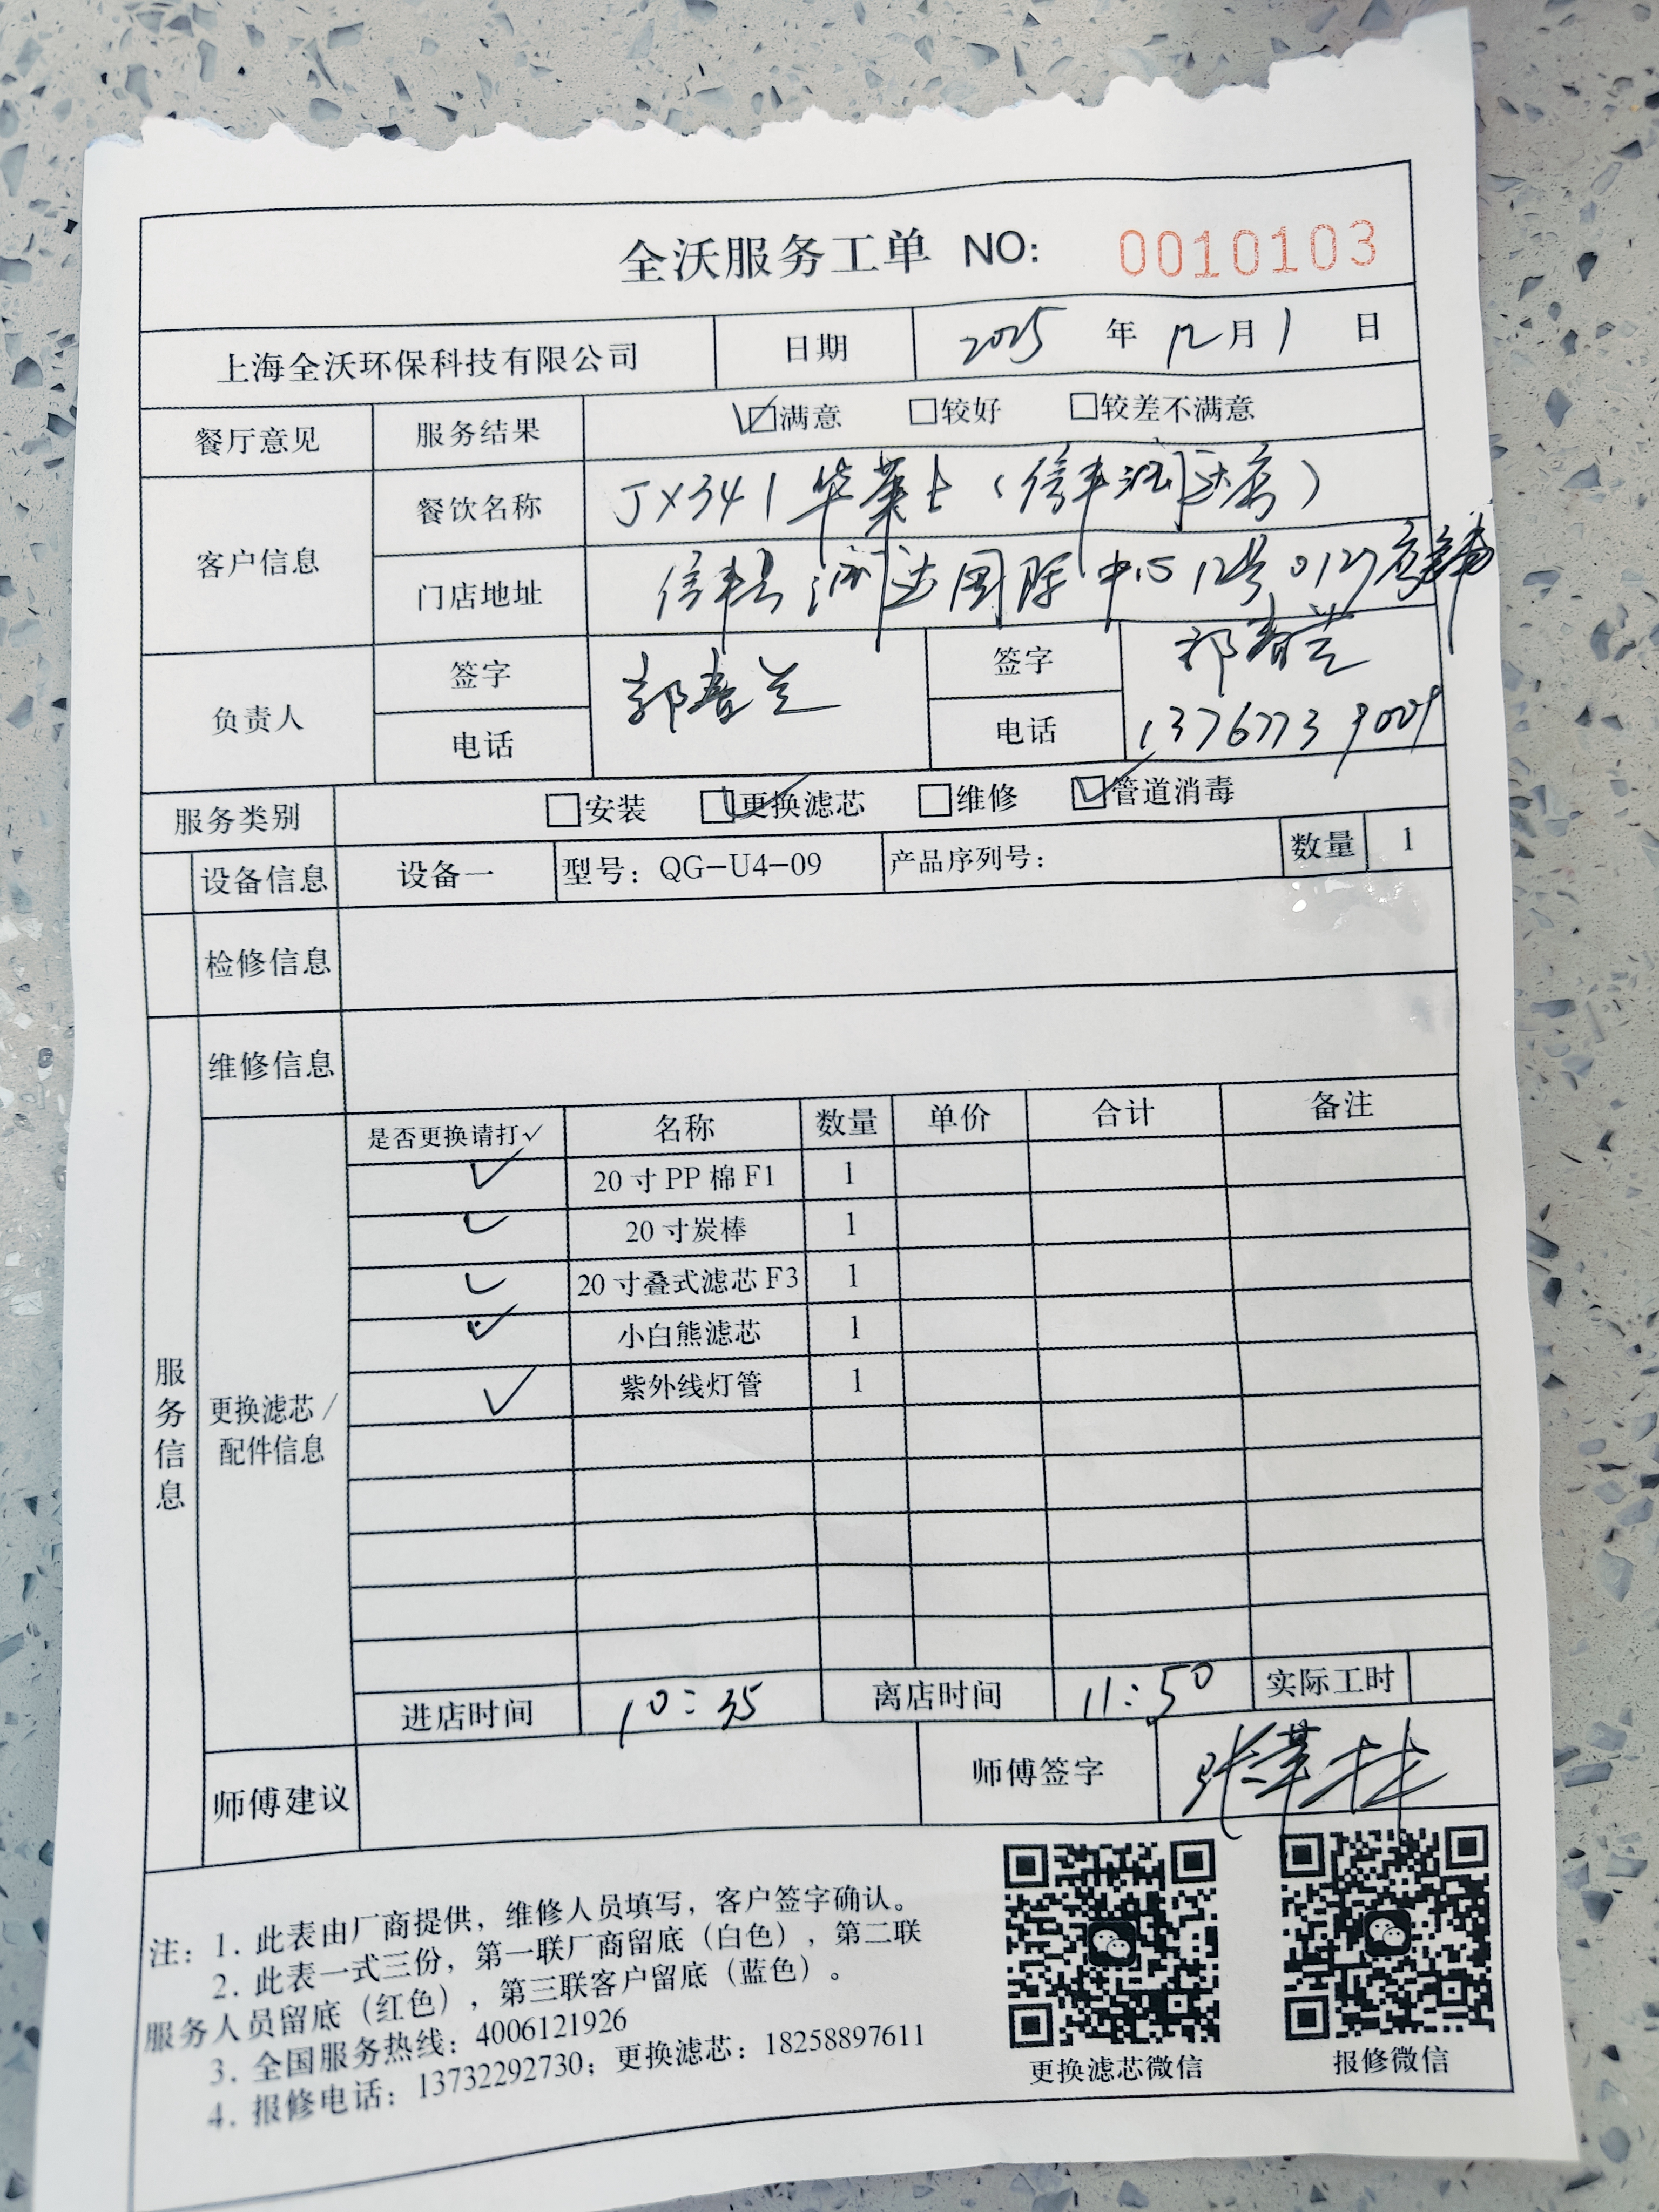 全沃服务工单 NO: 0010103
上海全沃环保科技有限公司 日期 2025 年 12 月 1 日
餐厅意见 服务结果 ☑满意 □较好 □较差不满意
客户信息 餐饮名称 JX341华莱士（信丰润达店）
门店地址 信丰县润达国际中心12号012
负责人 签字 郭春兰 签字 郭春兰
电话 电话 13767739009
服务类别 □安装 ☑更换滤芯 □维修 ☑管道消毒
设备信息 设备一 型号：QG-U4-09 产品序列号： 数量 1
检修信息
维修信息
服务信息
更换滤芯/
配件信息
是否更换请打✓ 名称 数量 单价 合计 备注
✓ 20寸PP棉F1 1
✓ 20寸炭棒 1
✓ 20寸叠式滤芯F3 1
✓ 小白熊滤芯 1
✓ 紫外线灯管 1
进店时间 10:35 离店时间 11:50 实际工时
师傅建议 师傅签字
注：1. 此表由厂商提供，维修人员填写，客户签字确认。
2. 此表一式三份，第一联厂商留底（白色），第二联
服务人员留底（红色），第三联客户留底（蓝色）。
3. 全国服务热线：4006121926
4. 报修电话：13732292730；更换滤芯：18258897611
更换滤芯微信 报修微信